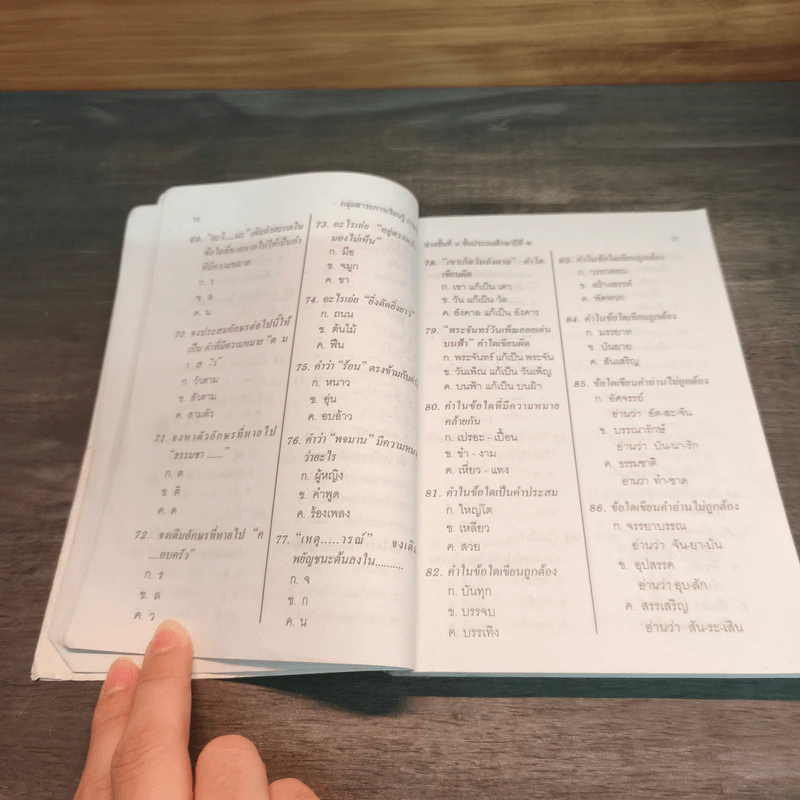 กลุ่มสาระการเรียนรู้
"อะไ....นะ" เติมตัวสะกดใน
ข้อใดที่ขาดหายไปให้เป็นคำ
ที่มีความหมาย
ก. ร
ข. ล
ค. น
70. จงประสมอักษรต่อไปนี้ให้
เป็น คำที่มีความหมาย "ต ม
ก. วัวตาม
ข. ตัวตาม
ค. สามตัว
71. จงหาตัวอักษรที่หายไป
"ธรรมชา ......"
ก. ต
ข. ติ
ค. ด
72. จงเติมอักษรที่หายไป "ค
....อบครัว"
ก. ร
ข. ล
ค. ว
73. อะไรเอ่ย "อยู่ตรงหน้า
มองไม่เห็น"
ก. มือ
ข. จมูก
ค. ขา
74. อะไรเอ่ย "ยิ่งตัดยิ่งยาว"
ก. ถนน
ข. ต้นไม้
ค. ฟืน
75. คำว่า "ร้อน" ตรงข้ามกับ
ก. หนาว
ข. อุ่น
ค. อบอ้าว
76. คำว่า "พจมาน" มีความ
ว่าอะไร
ก. ผู้หญิง
ข. คำพูด
ค. ร้องเพลง
77. "เหตุ.....ารณ์" จงเติม
พยัญชนะต้นลงใน..........
ก. จ
ข. ก
ค. น
ช่วงชั้นที่ ๑ ชั้นประถมศึกษาปีที่ ๒
77
78. "เขาเกิดวันอังคาร" คำใด
เขียนผิด
ก. เขา แก้เป็น เคา
ข. วัน แก้เป็น วัล
ค. อังคาล แก้เป็น อังคาร
79. "พระจันทร์วันเพ็ณลอยเด่น
บนฟ้า" คำใดเขียนผิด
ก. พระจันทร์ แก้เป็น พระจัน
ข. วันเพ็ณ แก้เป็น วันเพ็ญ
ค. บนฟ้า แก้เป็น บนฝ้า
80. คำในข้อใดที่มีความหมาย
คล้ายกัน
ก. เปรอะ - เปื้อน
ข. ขำ - งาม
ค. เหี่ยว - แทง
81. คำในข้อใดเป็นคำประสม
ก. ใหญ่โต
ข. เหลียว
ค. สวย
82. คำในข้อใดเขียนถูกต้อง
ก. บันทุก
ข. บรรจบ
ค. บรรเทิง
83. คำในข้อใดเขียนถูกต้อง
ก. วรรกตอน
ข. สร้างสรรค์
ค. พัดพราก
84. คำในข้อใดเขียนถูกต้อง
ก. มรรยาท
ข. บันยาย
ค. สันเสริญ
85. ข้อใดเขียนคำอ่านไม่ถูกต้อง
ก. อัศจรรย์
อ่านว่า อัด-สะ-จัน
ข. บรรณารักษ์
อ่านว่า บัน-นา-รัก
ค. ธรรมชาติ
อ่านว่า ทำ-ชาด
86. ข้อใดเขียนคำอ่านไม่ถูกต้อง
ก. จรรยาบรรณ
อ่านว่า จัน-ยา-บัน
ข. อุปสรรค
อ่านว่า อุบ-สัก
ค. สรรเสริญ
อ่านว่า สัน-ระ-เสิน